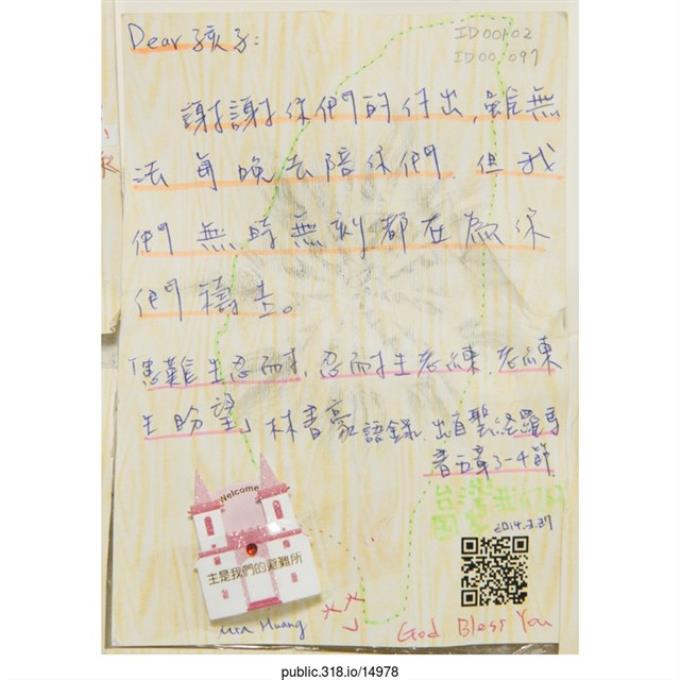 Dear 孩子:
ID 00102
ID 001097
謝謝你們的付出,雖無
法每晚去陪你們,但我
們無時無刻都在為你
們禱告。
「患難生忍耐,忍耐生老練,老練
生盼望」林書豪語錄,出自聖經羅馬
書五章3-4節
台灣我們的
國家
2014.3.27
Welcome
主是我們的避難所
Huang
God Bless You
public.318.io/14978